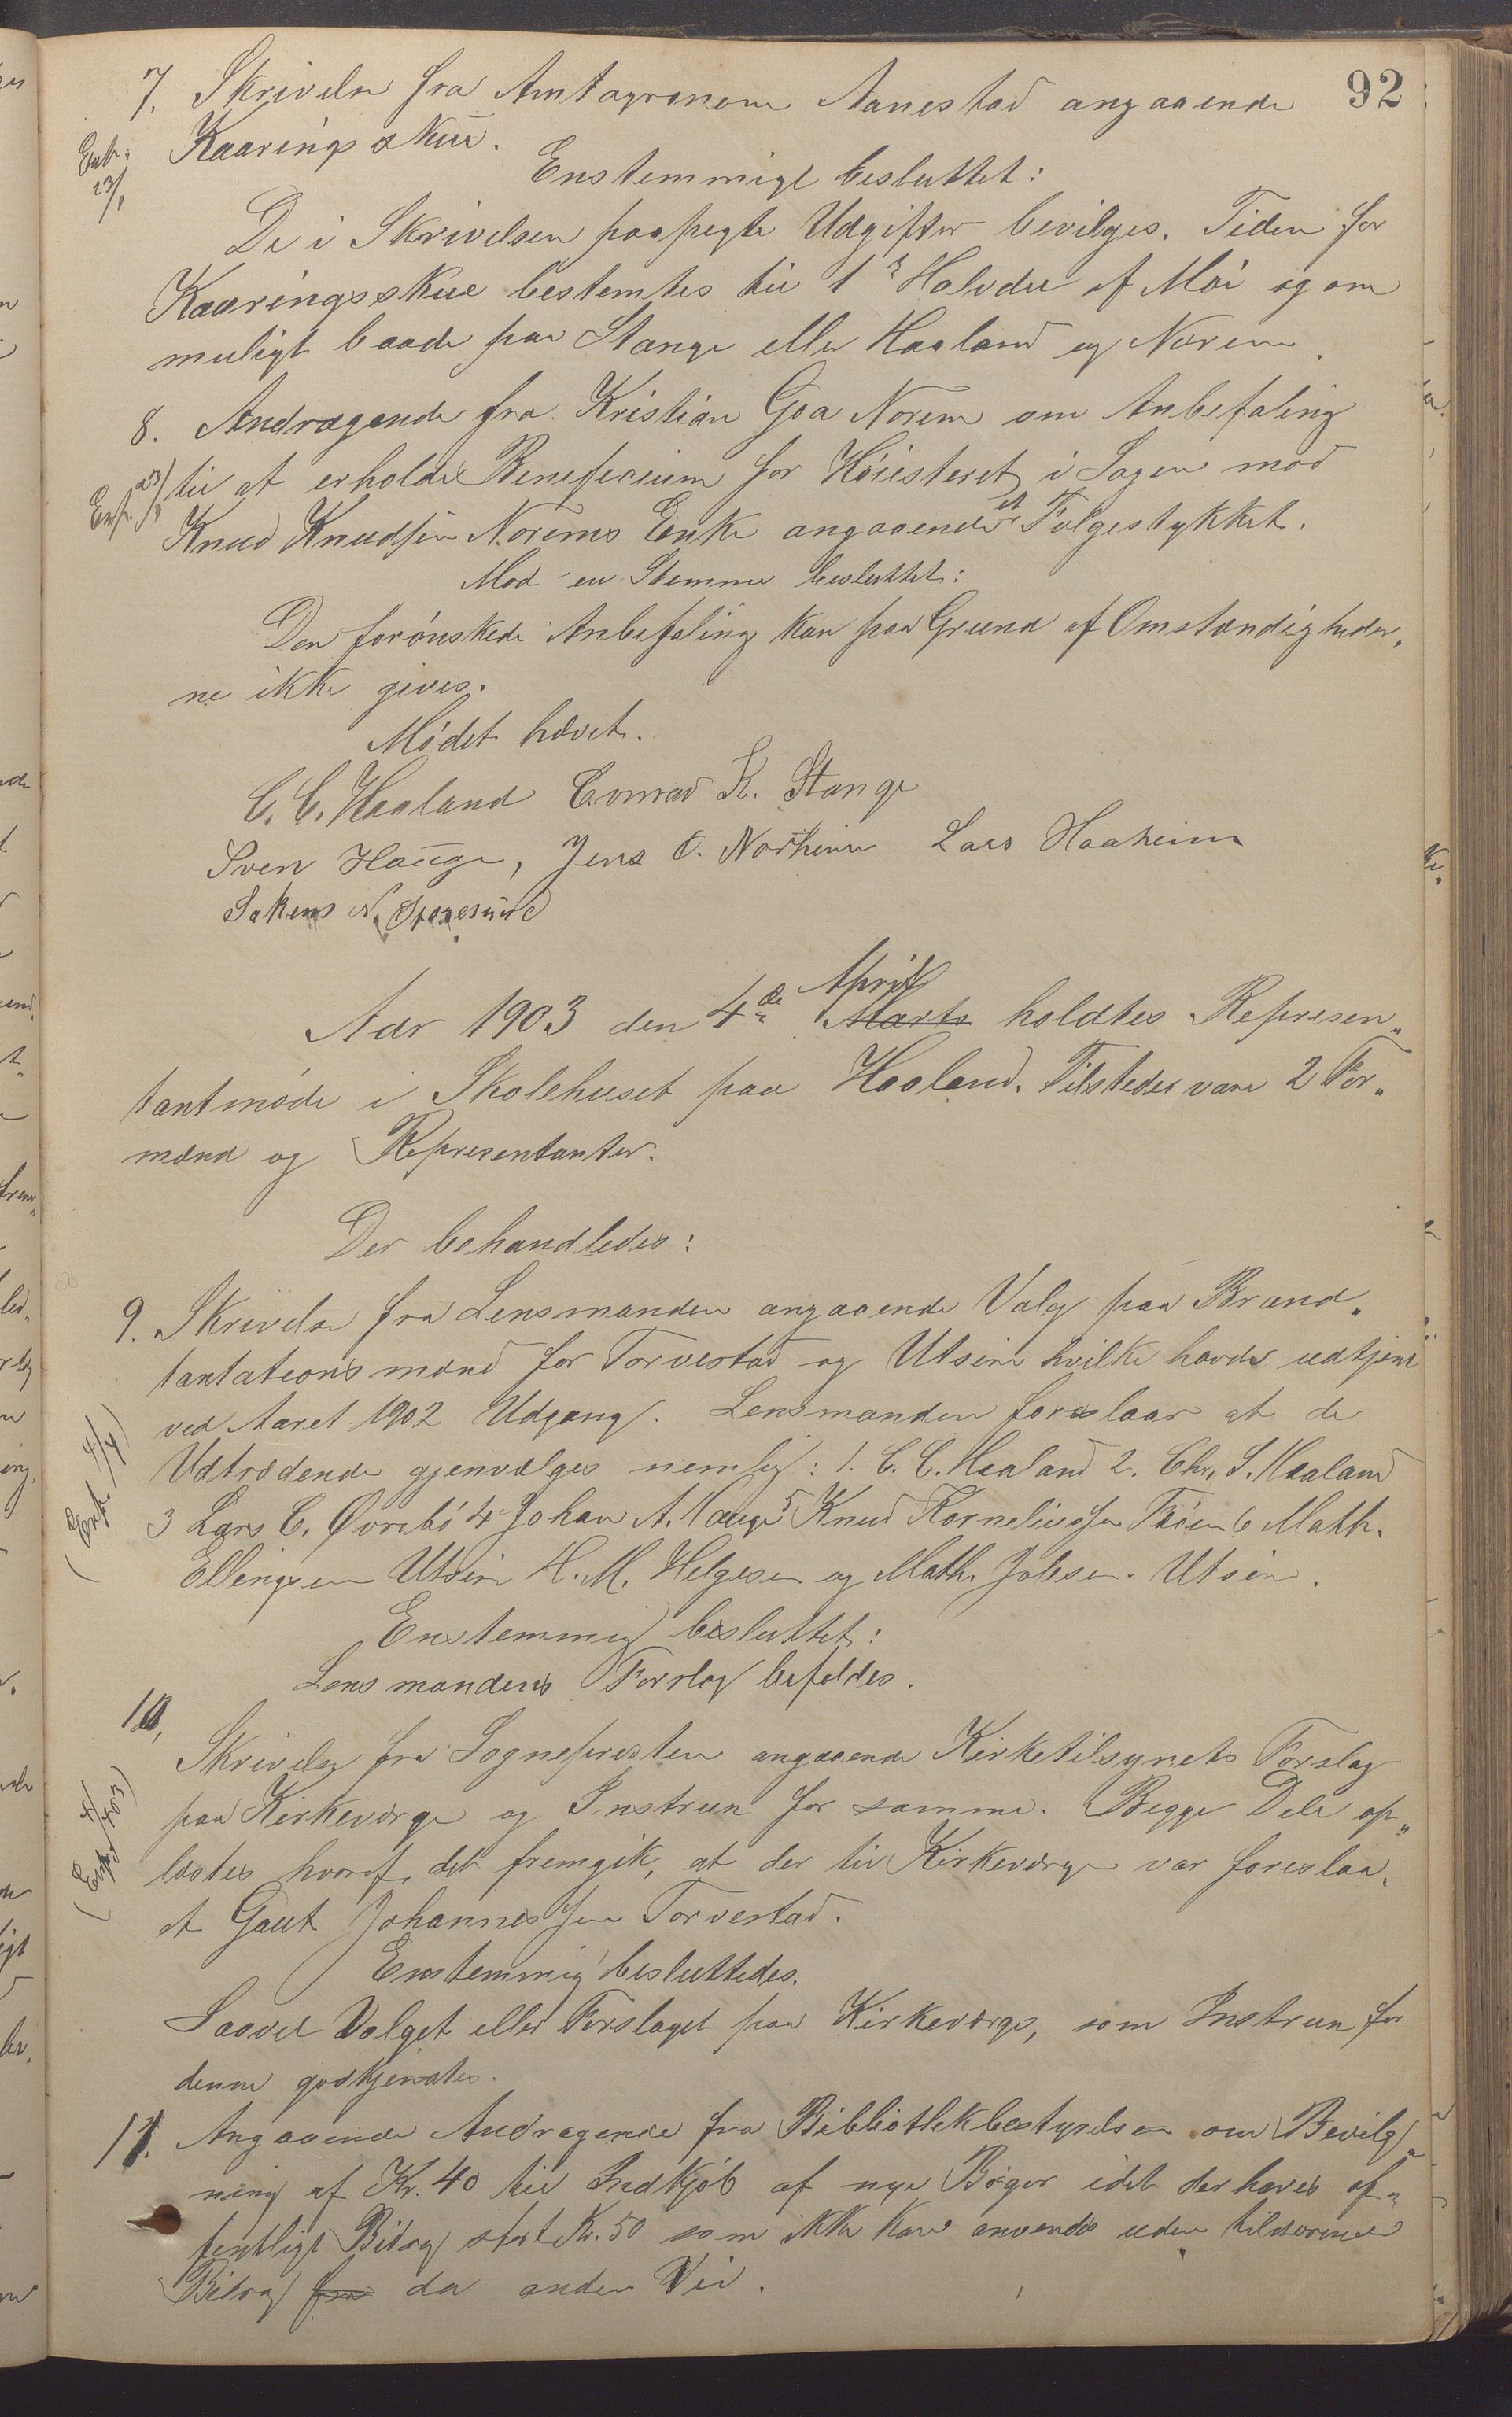 92
7. Skrivelse fra Amtagronom Aanestad angaaende
Kaaringsskue.
Exp. 23/1
Enstemmigt besluttet:
De i Skrivelsen paapegte Udgifter bevilges. Tiden for
Kaaringsskue bestemtes til 1ste Halvdel af Mai og om
muligt baade paa Stange eller Haaland og Norem.
8. Andragende fra Kristian Goa Norem om Anbefaling
til at erholde Beneficium for Høiesteret i Sagen mod
Exp. 23/1
Knud Knudsen Norems Enke angaaende et Følgestykket.
Mod en Stemme besluttet:
Den forønskede Anbefaling kan paa Grund af Omstændigheder„
ne ikke gives.
Mødet hævet.
C. C. Haaland Conrad K. Stange
Sven Hauge, Jens O. Nordheim Lars Haaheim
Sakens N. Storesund
Aar 1903 den 4de April Marts holdtes Represen„
tantmøde i Skolehuset paa Haaland. Tilstedes vare 2 For„
mænd og Representanter.
Der behandledes:
9. Skrivelse fra Lensmanden angaaende Valg paa Brand„
tantationsmænd for Torvestad og Utsire hvilke havde udtjent
ved Aaret 1902 Udgang. Lensmanden foreslaar at de
(Exp. 4/4)
Udtrædende gjenvælges nemlig: 1. C. C. Haaland 2. Chr. S. Haaland
3 Lars C. Øvrebø 4 Johan A. Hauge 5 Knud Korneliussen 6 Math.
Ellingsen Utsire H. M. Helgesen og Math. Jobsen. Utsire.
Enstemmig besluttet:
Lensmandens Forslag bifaldes.
10,
Skrivelse fra Sognepresten angaaende Kirketilsynets Forslag
paa Kirkeværge og Instrux for samme. Begge Dele op„
(Exped 4/4 03)
læstes hvoraf det fremgik, at der til Kirkeværge var foreslaa„
et Gaut Johannessen Torvestad.
Enstemmig besluttedes.
Saavel Valget eller Forslaget paa Kirkeværge, som Instrux for
denne godkjendtes.
11. Angaaende Andragende fra Bibliothekbestyrelsen om Bevilg„
ning af Kr. 40 til Indkjøb af nye Bøger idet der haves of„
fentligt Bidrag stort Kr. 50 som ikke kan anvendes uden tilsvarende
Bidrag fra da anden Vei.